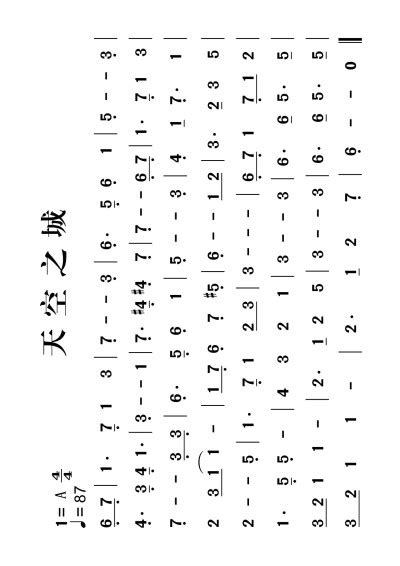 天空之城
1= A 4/4
♩=87
6 7 | 1· 7 1 3 | 7 - - 3 | 6· 5 6 1 | 5 - - 3 |
4· 3 4 1· | 3 - - 1 | 7· #4 #4 7 | 7 - - 6 7 | 1· 7 1 3 |
7 - - 3 3 | 6· 5 6 1 | 5 - - 3 | 4 1 7· 1 |
2 3 1 1 - | 1 7 6 7 #5 | 6 - - 1 2 | 3· 2 3 5 |
2 - - 5 | 1· 7 1 2 3 | 3 - - - | 6 7 1 7 1 2 |
1· 5 5 - | 4 3 2 1 | 3 - - 3 | 6· 6 5· 5 |
3 2 1 1 - | 2· 1 2 5 | 3 - - 3 | 6· 6 5· 5 |
3 2 1 1 - | 2· 1 2 7 | 6 - - 0 ‖